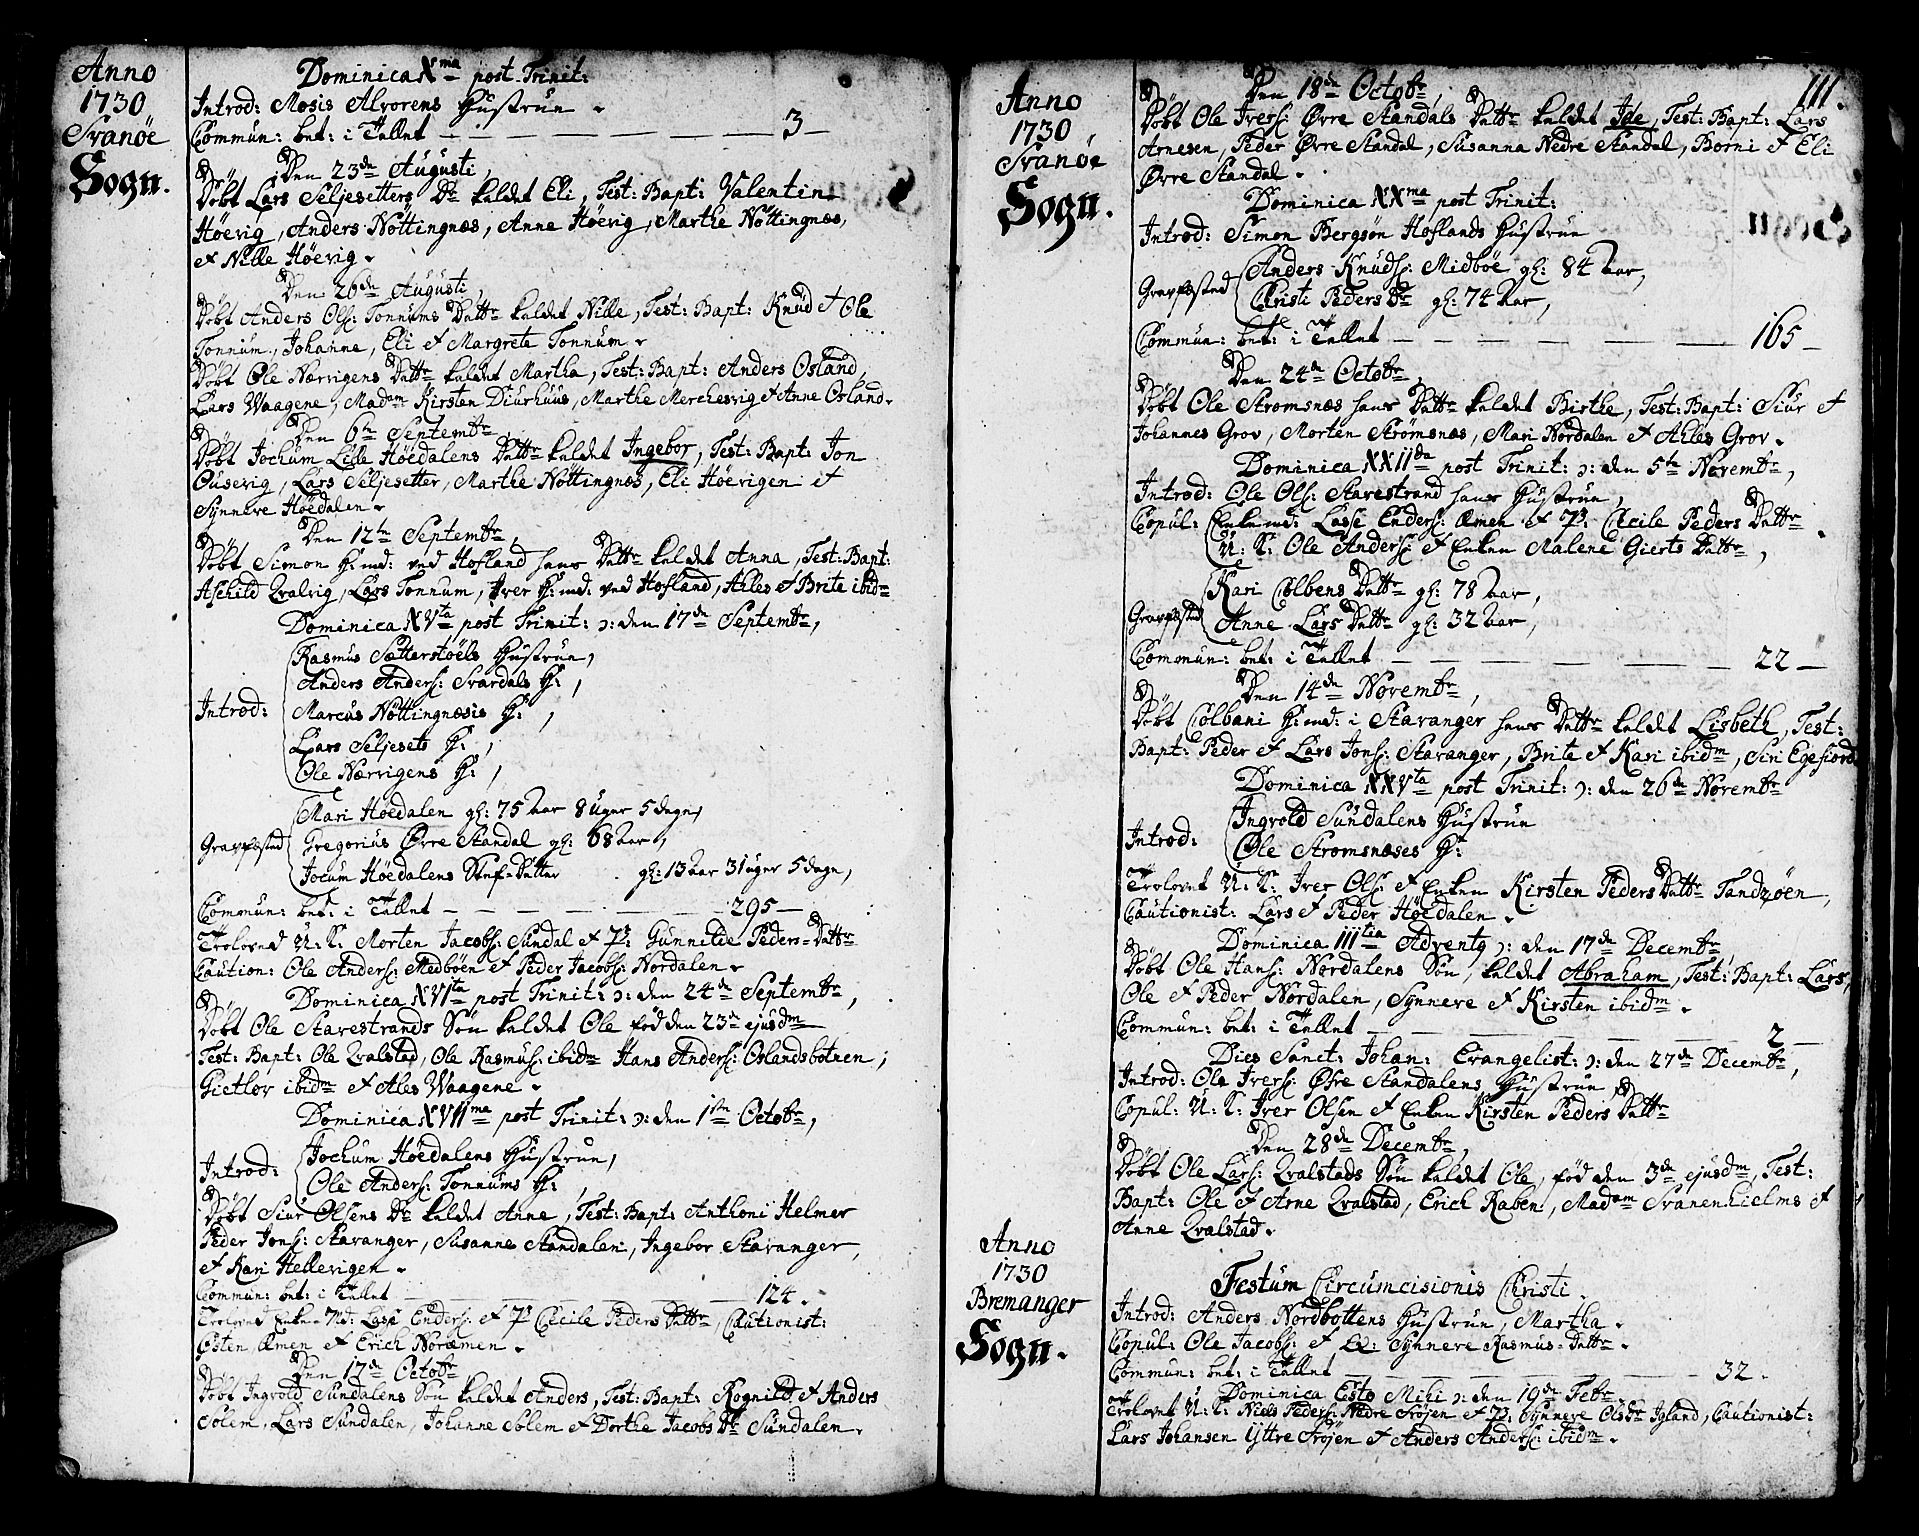 Anno
1730
Svanöe
Sogn.
Dominica Xma post Trinit:
Introd: Mosis Alvorens Hustrue.
Commun: bet: i Tallet — — — — — — 3 —
Den 23de Augusti,
Döbt Lars Seljesetters Dr kaldet Eli, Test: Bapt: Valentin
Höevig, Anders Nöttingnæs, Anne Höevig, Marthe Nöttingnæs,
et Nille Höevig.
Den 26de Augusti,
Döbt Anders Ols: Tonnums Dattr kaldet Nille, Test: Bapt: Knud et Ole
Tonnum, Johanne, Eli et Margrete Tonnum.
Döbt Ole Nærrigens Dattr kaldet Martha, Test: Bapt: Anders Osland,
Lars Waagene, Madam Kirsten Diurhuus, Marthe Merchesvig et Anne Osland.
Den 6te Septembr,
Döbt Jochum Lille Höedalens Dattr kaldet Ingebor, Test: Bapt: Jon
Ousevig, Lars Seljesetter, Marthe Nöttingnæs, Eli Höevigen et
Synneve Höedalen.
Den 12te Septembr,
Döbt Simon H:md: ved Hofland hans Dattr kaldet Anna, Test: Bapt:
Aschild Qvalvig, Lars Tonnum, Iver H:md: ved Hofland, Ahles et Brite ibidm
Dominica XVta post Trinit: ɔ: den 17de Septembr,
Rasmus Sætterstöels Hustrue,
Anders Anders: Svardals H:,
Introd: Marcus Nöttingnæsis H:,
Lars Seljesets H:,
Ole Nærrigens H:,
Mari Höedalen gl: 75 aar 8 uger 5 dage,
Gravfæsted Gregorius Övre Standal gl: 68 aar,
Jocum Höedalens Stef-Datter gl: 13 aar 31 uger 5 dage,
Commun: bet: i Tallet — — — — — — 295 —
Troloved U: K: Morten Jacobs: Sundal et P: Gunnilde Peders-Dattr
Caution: Ole Anders: Medböen et Peder Jacobs: Nordalen.
Dominica XVIta post Trinit: ɔ: den 24de Septembr,
Döbt Ole Starestrands Sön kaldet Ole föd den 23de ejusdm
Test: Bapt: Ole Qvalstad, Ole Rasmus: ibidm Hans Anders: Oslandsbotnen,
Gietlov ibidm et Ales Waagene.
Dominica XVIIma post Trinit: ɔ: den 1ste Octobr,
Introd: Jochum Höedalens Hustrue,
Ole Anders: Tonnums H:,
Döbt Siur Olsens Dr kaldet Anne, Test: Bapt: Anthoni Helmer
Peder Jons: Stavanger, Susanne Standalen, Ingebor Stavanger,
et Kari Hellevigen.
Commun: bet: i Tallet — — — — — — 124.
Troloved Enke-Md: Lasse Enders: et P: Cecile Peders Dattr, Cautionist:
Östen Æmen et Erich Noræmen.
Den 12de Octobr
Döbt Ingvold Sundalens Sön kaldet Anders, Test: Bapt: Rognild et Anders
Solem, Lars Sundalen, Johanne Solem et Dorthe Jacobs Dr Sundalen.
Anno
1730
Svanöe
Sogn.
111.
Den 18de Octobr,
Döbt Ole Ivers: Övre Standals Dattr kaldet Ide, Test: Bapt: Lars
Arnesen, Peder Övre Standal, Susanna Nedre Standal, Borni et Eli
Övre Standal.
Dominica XXma post Trinit:
Introd: Simon Bergsön Hoflands Hustrue
Gravfæsted Anders Knuds: Midböe gl: 84 aar,
Christi Peders Dr gl: 74 aar,
Commun: bet: i Tallet — — — — — — 165 —
Den 24de Octobr,
Döbt Ole Stromsnæs hans Dattr kaldet Birthe, Test: Bapt: Siur et
Johannes Grov, Morten Strömsnæs, Mari Nordalen et Ahles Grov.
Dominica XXIIda post Trinit: ɔ: den 5te Novembr,
Introd: Ole Ols: Starestrand hans Hustrue,
Copul: Enkemd: Lasse Enders: Æmen et P: Cecile Peders Dattr
U: K: Ole Anders: et Enken Malene Gierts Dattr,
Kari Colbens Dattr gl: 78 aar,
Gravfæsted Anne Lars Dattr gl: 32 aar,
Commun: bet: i Tallet — — — — — — 22 —
Den 14de Novembr,
Döbt Colbani H:md: i Stavanger hans Dattr kaldet Lisbeth, Test:
Bapt: Peder et Lars Jons: Stavanger, Brite et Kari ibidm, Siri Egefiord
Dominica XXVta post Trinit: ɔ: den 26de Novembr
Introd: Ingvold Sundalens Hustrue
Ole Stromsnæses H:
Trolovet U: K: Iver Ols: et Enken Kirsten Peders Dattr Tandzöen,
Cautionist: Lars et Peder Höedalen.
Dominica IIItia Advent9 ɔ: den 17de Decembr
Döbt Ole Hans: Nordalens Sön kaldet Abraham, Test: Bapt: Lars,
Ole et Peder Nordalen, Synneve et Kirsten ibidm.
Commun: bet: i Tallet — — — — — — 2 —
Dies Sanct: Johan: Evangelist: ɔ: den 27de Decembr,
Introd: Ole Ivers: Öfre Standalens Hustrue,
Copul: U: K: Iver Olsen et Enken Kirsten Peders Dattr
Den 28de Decembr,
Döbt Ole Lars: Qvalstads Sön kaldet Ole, föd den 3de ejusdm, Test:
Bapt: Ole et Arne Qvalstad, Erich Raben, Madam Svanenhielms et
Anne Qvalstad.
Anno
1730
Bremanger
Sogn.
Festum Circumcisionis Christi.
Introd: Anders Nordbottens Hustrue, Martha.
Copul: Ole Jacobs: et Qv: Synneve Rasmus-Dattr.
Commun: bet: i Tallet — — — — — — 32.
Dominica Esto Mihi ɔ: den 19de Febr
Trolovet U: K: Niels Peders: Nedre Fröjen et P: Synneve Olsdr Igland, Cautionist:
Lars Johansen Yttre Fröjen et Anders Anders: ibidm.